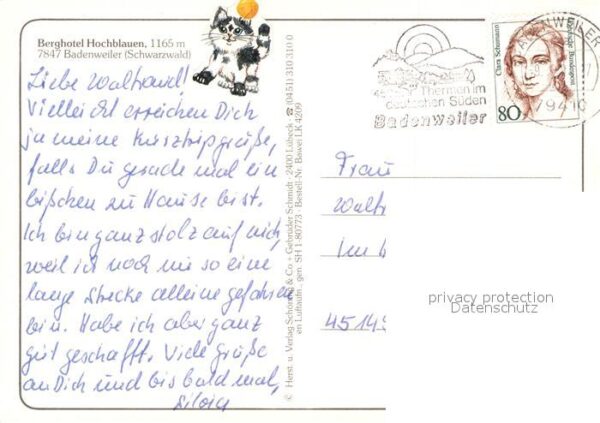 Berghotel Hochblauen, 1165 m
7847 Badenweiler (Schwarzwald)
Liebe Waltraud!
Vielleicht erreichen Dich
ja meine Kurztripgrüße,
falls Du gerade mal ein
bißchen zu Hause bist.
Ich bin ganz stolz auf mich,
weil ich noch nie so eine
lange Strecke alleine gefahren
bin. Habe ich aber ganz
gut geschafft. Viele Grüße
an Dich und bis bald mal,
Silvia
© Herst. u. Verlag Schöning & Co + Gebrüder Schmidt · 2400 Lübeck · ☎ (0451) 310 310
en Luftaufn., gen. SH 1-80773 · Bestell-Nr. Bawei LK 4209
Thermen im
deutschen Süden
Badenweiler
BADENWEILER
79410
Clara Schumann
Deutsche Bundespost
80
Frau
Waltr
Im
4514
privacy protection
Datenschutz